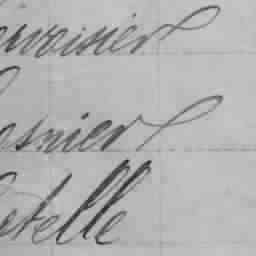 ervoisier
esnier
etelle